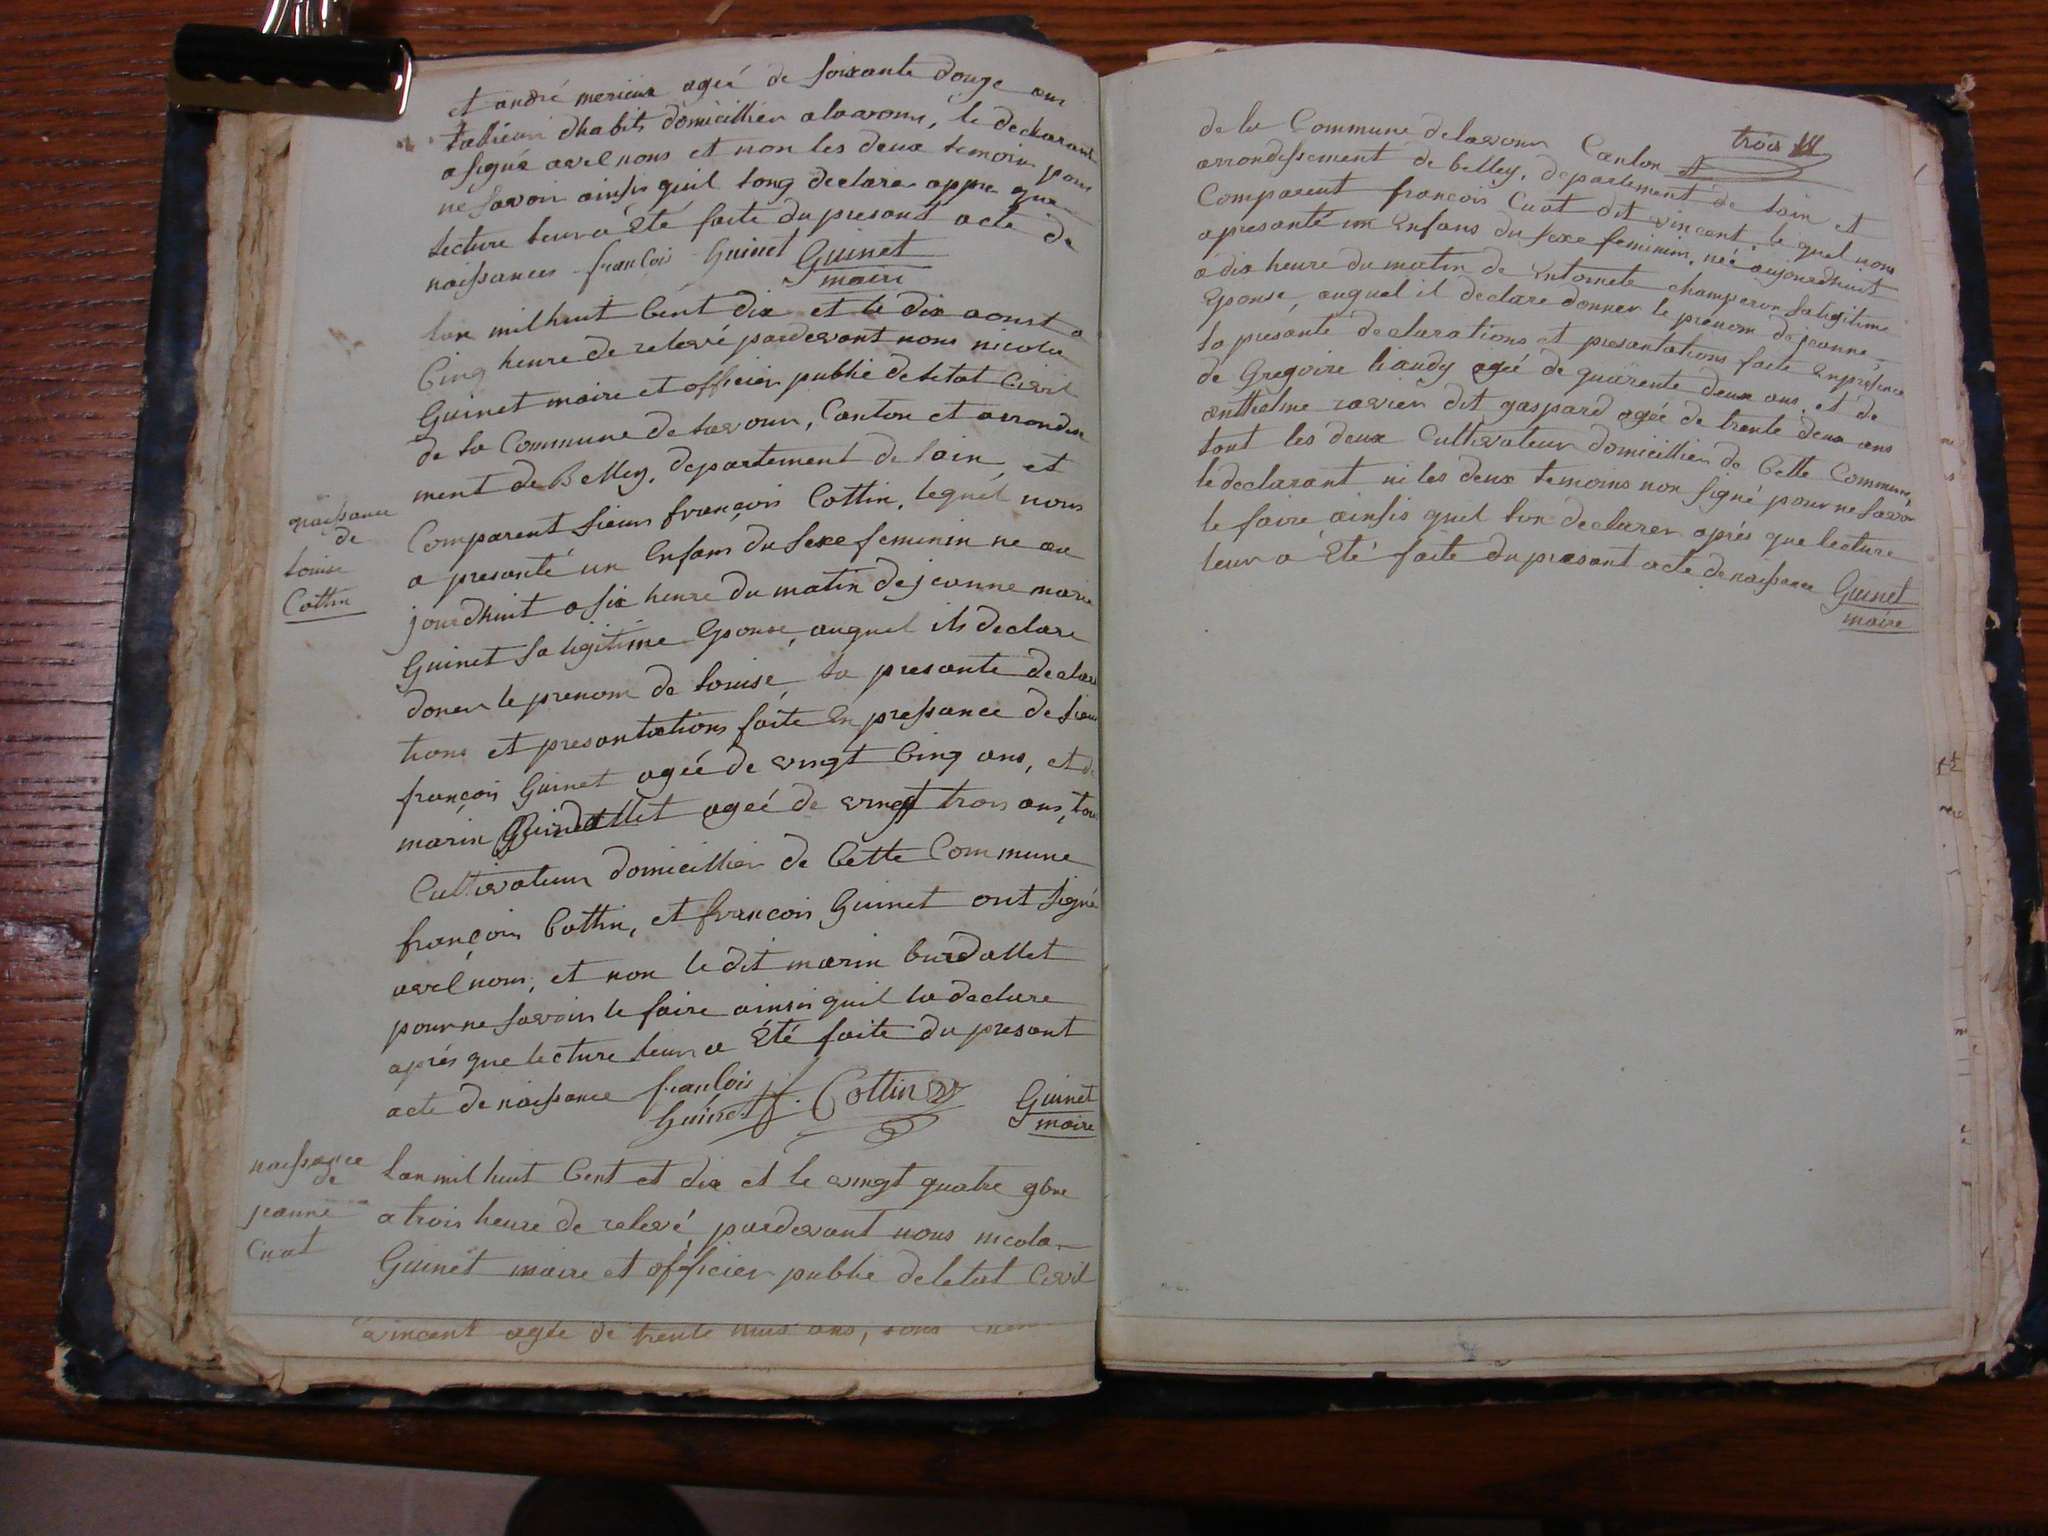 et andré merieux ageé de soixante douze ans
tallieur dhabits domicillier a lavour, le declarant
a signé avec nous et non les deux temoin pour
ne savoir ainsis quil long declarer appre que
lecture leur a Eté faite du presant acte de
naissances françois Guinet Guinet
maire
lan mil huit Cent dix et le dix aoust a
Cinq heure de relevé pardevant nous nicola
Guinet maire et officier public de letat Civil
de la Commune de Lavour, Canton et arrondisse
ment de Belley, departement de lain, et
naissance
de
Louise
Cottin
Comparent sieur françois Cottin, lequel nous
a presanté un Enfans du Sexe feminin ne au
jourdhuit a six heure du matin de jeanne marie
Guinet sa ligitime Eponse, auquel ils declare
doner le prenom de Louise, la presante declara
tions et presantations faite En pressance de sieur
françois Guinet ageé de vingt Cinq ans, et de
marin Burdallet ageé de vingt trois ans, tous
Cultivateur domicillier de Cette Commune
françois Cottin, et françois Guinet ont signé
avec nous, et non le dit marin burdallet
pour ne savoir le faire ainsis quil la declare
aprés que lecture leur a Eté faite du presant
acte de naissance françois
Guinet Cottin Guinet
maire
naissance
de
jeanne
Cuat
Lan mil huit Cent et dix et le vingt quatre 9bre
a trois heure de relevé pardevant nous nicola
Guinet maire et officier public de letat Civil
vincent agée de trente ans, tous
trois
de la Commune de lavour Canton et
arrondissement de belley, departement de lain et
Comparent françois Cuat dit vincent, le quel nous
a presanté un Enfans du sexe feminin, neé aujourdhuit
a dix heure du matin de Entoinete champeron sa ligitime
Eponse, auquel il declare donner le prenom de jeanne
la presante declarations et presantations faite En presence
de Gregoire liaudy ageé de quarente deux ans, et de
anthelme ravier dit gaspard ageé de trente deux ans
tout les deux Cultivateur domicillier de Cette Commune,
le declarant ni les deux temoins non signé pour ne savoir
le faire ainsis quil lon declarer aprés que lecture
leur a Eté faite du presant acte de naissance Guinet
maire